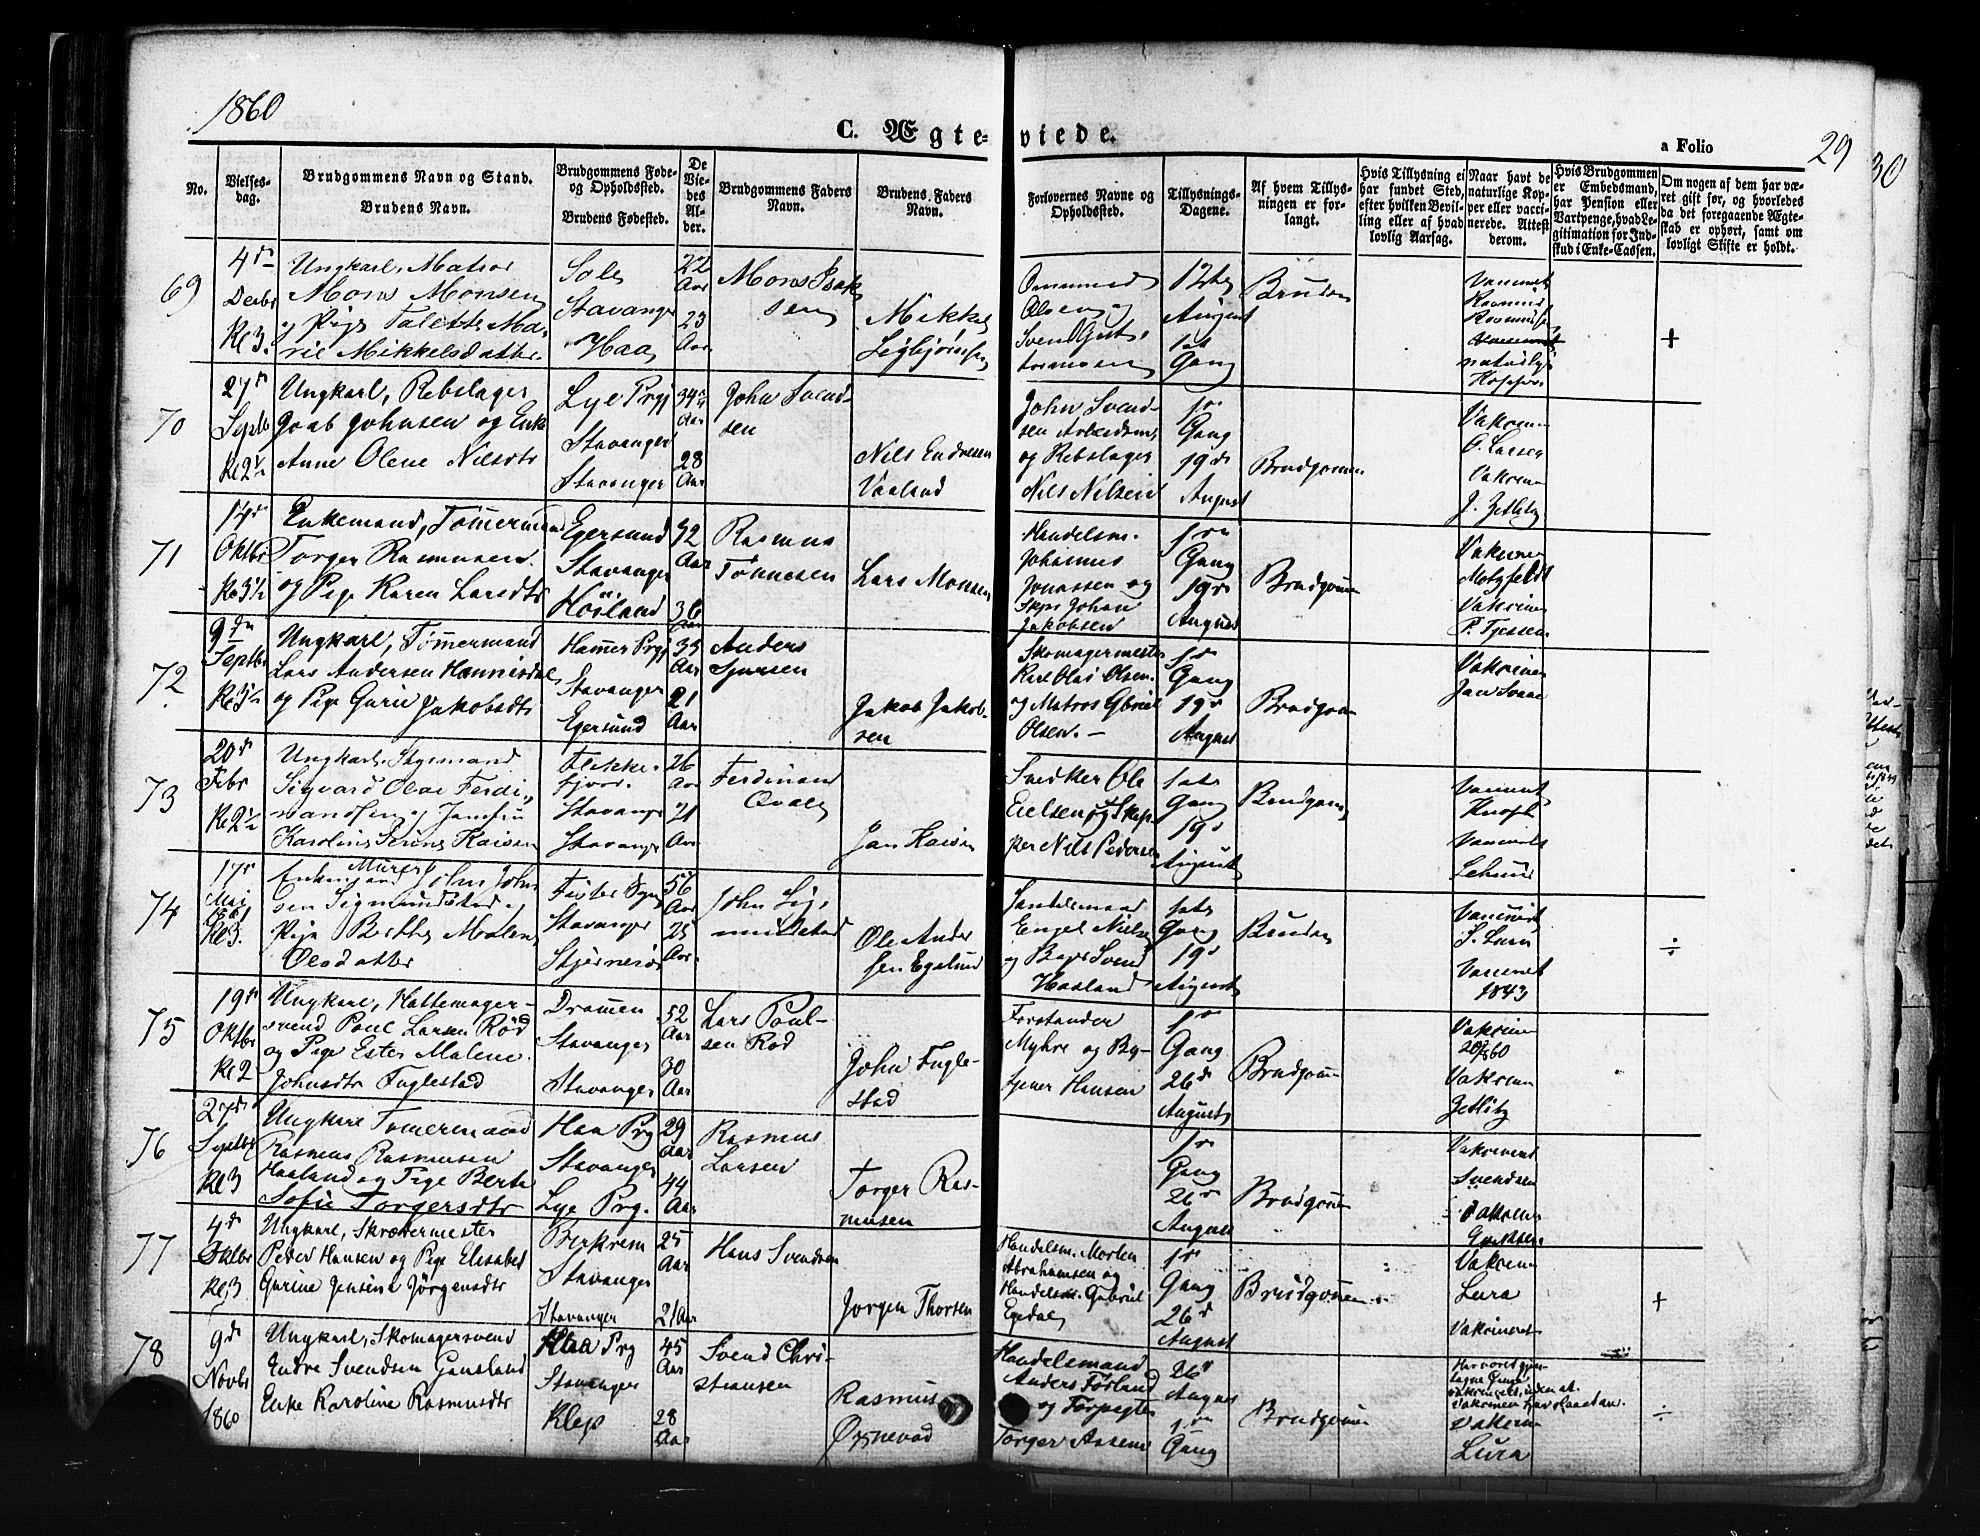 1860
C. Ægteviede.
a Folio
29
30
No.
Vielses-
dag.
Brudgommens Navn og Stand.
Brudens Navn.
Brudgommens Føde-
og Opholdssted.
Brudens Fødested.
De
Vie-
des
Al-
der.
Brudgommens Faders
Navn.
Brudens Faders
Navn.
Forlovernes Navne og
Opholdssted.
Tillysnings-
Dagene.
Af hvem Tillys-
ningen er for-
langt.
Hvis Tillysning ei
har fundet Sted,
efter hvilken Bevil-
ling eller af hvad
lovlig Aarsag.
Naar havt de
naturlige Kop-
per eller vacci-
nerede. Attest
derom.
Hvis Brudgommen
er Embedsmand,
har Pension eller
Vartpenge, hvad Le-
gitimation for Ind-
skud i Enke-Cassen.
Om nogen af dem har væ-
ret gift før, og hvorledes
da det foregaaende Ægte-
skab er ophørt, samt om
lovligt Skifte er holdt.
69
4de
Decbr
Kl 3.
Ungkarl, Matros
Mons Monsen
og Pige Talette Ma-
rie Mikkelsdatter
Sole
Stavanger
Haa
22
Aar
23
Aar
Mons Isak
sen
Mikkel
Sigbjørnsen
Omunnd
Olsen og
Svend Gut-
tormsen
12te
August
1ste
Gang
Bruden
Vaccinert
Rasmus
naturlige
Kopper
+
70
27de
Septbr
Kl 2½
Ungkarl, Rebslager
Joab Johnsen og Enke
Anne Olene Nilsdtr
Lye Prgj
Stavanger
Stavanger
34
Aar
28
Aar
John Svend-
sen
Nils Endresen
Vaaland
John Svend-
sen Arbeidsm.
og Rebslager
Nils Nilsen
1ste
Gang
19de
August
Brudgommen
Vakcine
O. Larsen
Vakcine
J. Zetlitz
71
14de
Oktbr
Kl 3½
Enkemand, Tømermand
Torger Rasmusen
og Pige Karen Larsdtr
Egersund
Stavanger
Høiland
42
Aar
36
Aar
Rasmus
Tønnesen
Lars Monsen
Handelsm.
Johannes
Jonassen og
Skpr Johan
Jakobsen
1ste
Gang
19de
August
Brudgommen
Vakcine
Motzfeldt
Vakcine
P. Tjessem
72
9de
Septbr
Kl 3½
Ungkarl, Tømermand
Lars Andersen Hannisdal
og Pige Gurie Jakobsdtr
Hammer Prgj
Stavanger
Egersund
33
Aar
21
Aar
Anders
Sjursen
Jakob Jakob-
sen
Skomagermester
Karl Olai Olsen
og Matros Gbriel
Olsen. —
1ste
Gang
19de
August
Brudgom
Vakcine
Jan Svane
73
20de
Febr
Kl 2½
Ungkarl, Styrmand
Sigvard Olai Ferdi-
nandsen og Jomfru
Karoline Kaisen
Flekke-
fjord.
Stavanger
Stavanger
26
Aar
21
Aar
Ferdinand
Qvale
Jan Kaisen
Snedker Ole
Eielsen og Skip-
per Nils Pedersen
1ste
Gang
19de
August
Brudgom
Vaccinert
Vaccinert
74
17de
Mai
1861
Kl 3.
Enkemand Murer John John-
sen Sigmundstad og
Pige Berthe Malene
Olsdatter
Stavanger
56
Aar
25
Aar
John Sig-
mundstad
Ole Ander
sen Egelund
Handelsmand
Engel Nielsen
og Bager Svend
Haaland
1ste
Gang
19de
August
Bruden
Vaccinert
Vaccinert
1843
÷
75
19de
Oktbr
Kl 2
Ungkarl, Hattemager-
svend Poul Larsen Rød
og Pige Ester Malene
Johnsdtr Fuglestad
Dramen
Stavanger
Stavanger
52
Aar
30
Aar
Lars Poul-
sen Rød
John Fugle-
stad
Forstander
Myhre og By-
tjener Hansen
1ste
Gang
26de
August
Brudgom
Vakcine
Vakcine
Zetlitz
76
27de
Septbr
Kl 3
Ungkarl Tømermand
Rasmus Rasmusen
Haaland og Pige Berte
Sofie Torgersdtr
Haa Prg
Stavanger
Lye Prg.
29
Aar
44
Aar
Rasmus
Larsen
Torger Ras-
musen
1ste
Gang
26de
August
Brudgommen
Vakcineret
Svendsen
Vakcine
77
4de
Oktbr
Kl 3
Ungkarl, Skrædermester
Peder Hansen og Pige Elisabet
Gurine Jensine Jörgensdtr
Birkrem
Stavanger
Stavanger
25
Aar
21 Aar
Hans Svendsen
Jorgen Thorsen
Handelsm. Morten
Abrahamsen og
Handelsm. Gabriel
Egedal
1ste
Gang
26de
August
Brudgommen
Vakcine
Lura
Vakcineret
+
78
9de
Novbr
1860
Ungkarl, Skomagersvend
Endre Svendsen Gausland
Enke Karoline Rasmusdtr
Haa Prg
Stavanger
Klep
45
Aar
28
Aar
Svend Chri-
stiansen
Rasmus
Orsnevad
Handelsmand
Anders Førland
og Forpagter
Torger Aasen
26de
August
1ste
Gang
Brudgommen
Vakcine
Lura
÷